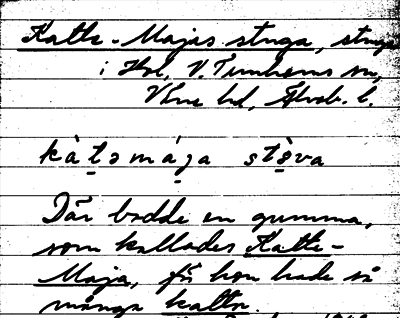 Katte-Majas stuga, stuga
i Hol, V. Tunhems sn,
Väne hd, Älvsb. l.
kàtǝmája stǝ̀va
Där bodde en gumma,
som kallades Katte-
Maja, för hon hade så
många kattor.